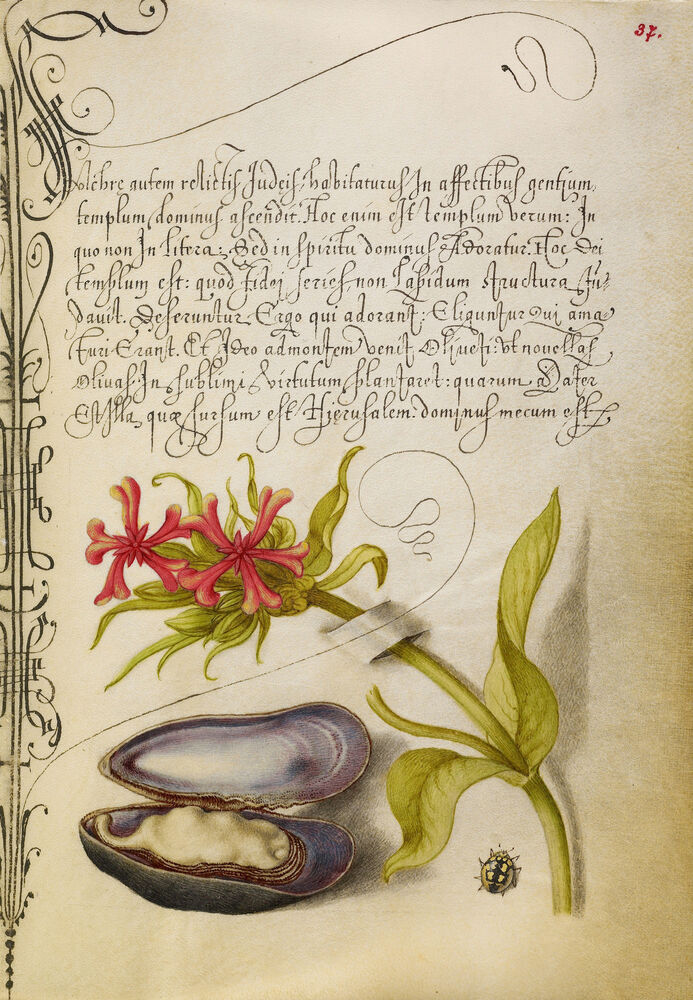 37.
Bethre autem relictis Judeis, habitaturus In affectibus gentium,
templum dominus ascendit. Hoc enim est templum verum: In
quo non In litera: Sed in spiritu dominus Adoratur. Hoc Dei
templum est: quod fidei series, non Lapidum structura fu-
davit. Deseruntur Ergo qui adorant: Eliguntur Qui ama
turi Erant. Et Ideo ad montem venit Oliveti: vt novellas
Olivas In sublimi virtutum plantaret: quarum Mater
Est Illa, quæ sursum est Hierusalem: dominus mecum est